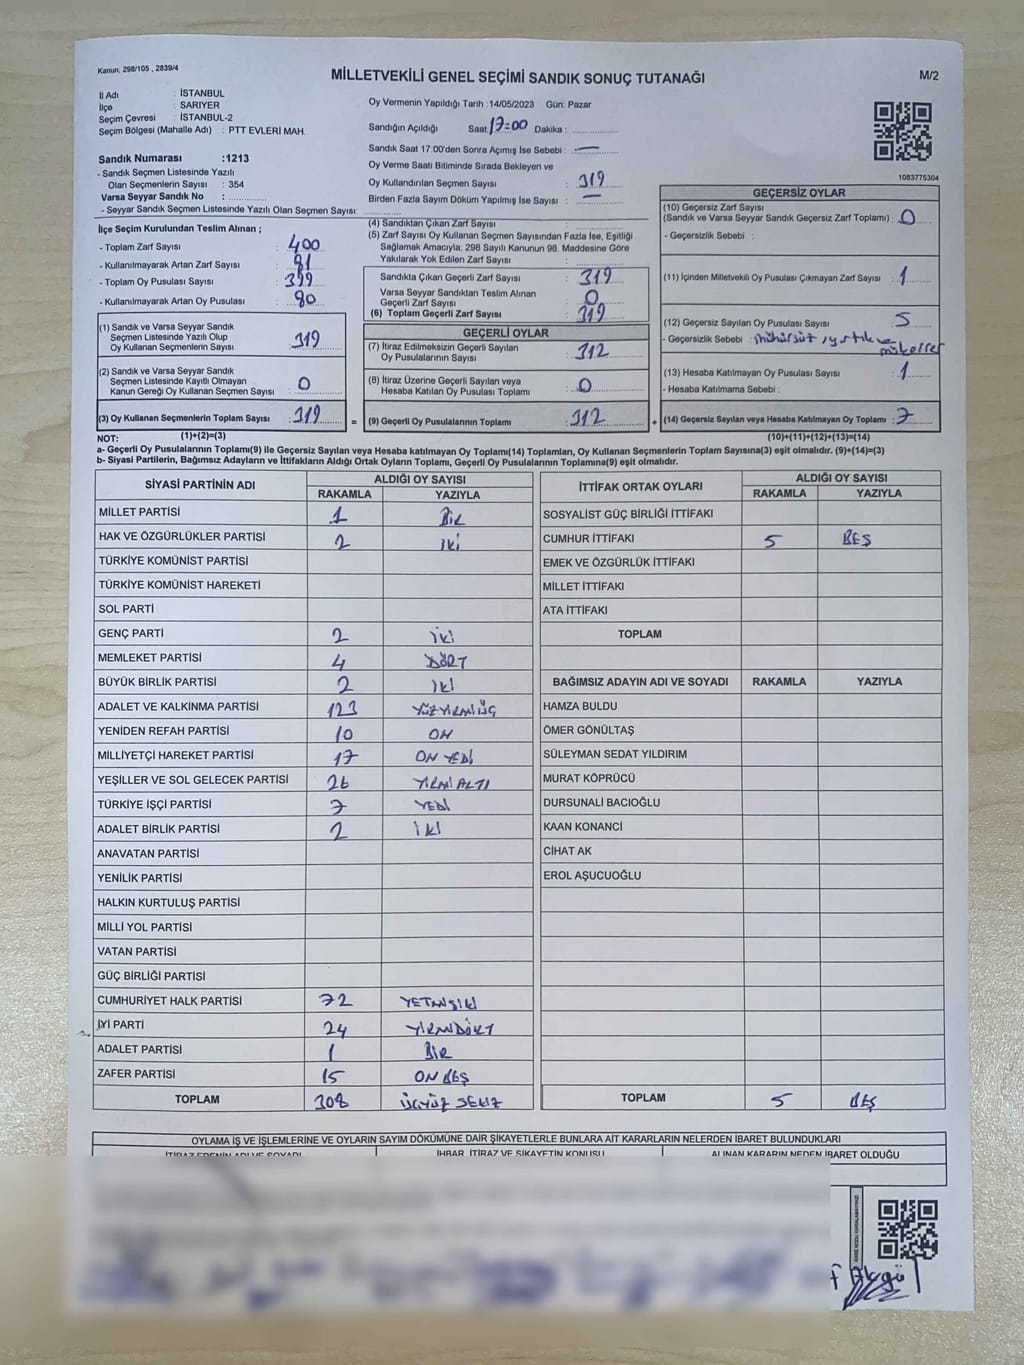 Kanun: 298/105 , 2839/4
MİLLETVEKİLİ GENEL SEÇİMİ SANDIK SONUÇ TUTANAĞI
M/2
İl Adı : İSTANBUL
İlçe : SARIYER
Seçim Çevresi : İSTANBUL-2
Seçim Bölgesi (Mahalle Adı) : PTT EVLERİ MAH.
Sandık Numarası :1213
- Sandık Seçmen Listesinde Yazılı
Olan Seçmenlerin Sayısı : 354
Varsa Seyyar Sandık No :
- Seyyar Sandık Seçmen Listesinde Yazılı Olan Seçmen Sayısı:
Oy Vermenin Yapıldığı Tarih :14/05/2023 Gün: Pazar
Sandığın Açıldığı Saat: 17:00 Dakika :
Sandık Saat 17:00'den Sonra Açımış İse Sebebi : —
Oy Verme Saati Bitiminde Sırada Bekleyen ve
Oy Kullandırılan Seçmen Sayısı : 319
Birden Fazla Sayım Döküm Yapılmış İse Sayısı : —
1083775304
İlçe Seçim Kurulundan Teslim Alınan ;
- Toplam Zarf Sayısı : 400
- Kullanılmayarak Artan Zarf Sayısı : 81
- Toplam Oy Pusulası Sayısı : 399
- Kullanılmayarak Artan Oy Pusulası : 80
(1) Sandık ve Varsa Seyyar Sandık
Seçmen Listesinde Yazılı Olup
Oy Kullanan Seçmenlerin Sayısı : 319
(2) Sandık ve Varsa Seyyar Sandık
Seçmen Listesinde Kayıtlı Olmayan
Kanun Gereği Oy Kullanan Seçmen Sayısı : 0
(3) Oy Kullanan Seçmenlerin Toplam Sayısı : 319
(1)+(2)=(3)
(4) Sandıktan Çıkan Zarf Sayısı :
(5) Zarf Sayısı Oy Kullanan Seçmen Sayısından Fazla İse, Eşitliği
Sağlamak Amacıyla, 298 Sayılı Kanunun 98. Maddesine Göre
Yakılarak Yok Edilen Zarf Sayısı :
Sandıkta Çıkan Geçerli Zarf Sayısı : 319
Varsa Seyyar Sandıktan Teslim Alınan
Geçerli Zarf Sayısı : 0
(6) Toplam Geçerli Zarf Sayısı : 319
GEÇERLİ OYLAR
(7) İtiraz Edilmeksizin Geçerli Sayılan
Oy Pusulalarının Sayısı : 312
(8) İtiraz Üzerine Geçerli Sayılan veya
Hesaba Katılan Oy Pusulası Toplamı : 0
= (9) Geçerli Oy Pusulalarının Toplamı : 312 +
GEÇERSİZ OYLAR
(10) Geçersiz Zarf Sayısı
(Sandık ve Varsa Seyyar Sandık Geçersiz Zarf Toplamı) : 0
- Geçersizlik Sebebi :
(11) İçinden Milletvekili Oy Pusulası Çıkmayan Zarf Sayısı : 1
(12) Geçersiz Sayılan Oy Pusulası Sayısı : 5
- Geçersizlik Sebebi : mühürsüz, yırtık ve
mükerrer
(13) Hesaba Katılmayan Oy Pusulası Sayısı : 1
- Hesaba Katılmama Sebebi :
(14) Geçersiz Sayılan veya Hesaba Katılmayan Oy Toplamı : 7
(10)+(11)+(12)+(13)=(14)
NOT:
a- Geçerli Oy Pusulalarının Toplamı(9) ile Geçersiz Sayılan veya Hesaba katılmayan Oy Toplamı(14) Toplamları, Oy Kullanan Seçmenlerin Toplam Sayısına(3) eşit olmalıdır. (9)+(14)=(3)
b- Siyasi Partilerin, Bağımsız Adayların ve İttifakların Aldığı Ortak Oyların Toplamı, Geçerli Oy Pusulalarının Toplamına(9) eşit olmalıdır.
SİYASİ PARTİNİN ADI ALDIĞI OY SAYISI
RAKAMLA YAZIYLA
MİLLET PARTİSİ 1 BİR
HAK VE ÖZGÜRLÜKLER PARTİSİ 2 İKİ
TÜRKİYE KOMÜNİST PARTİSİ
TÜRKİYE KOMÜNİST HAREKETİ
SOL PARTİ
GENÇ PARTİ 2 İKİ
MEMLEKET PARTİSİ 4 DÖRT
BÜYÜK BİRLİK PARTİSİ 2 İKİ
ADALET VE KALKINMA PARTİSİ 123 YÜZYİRMİÜÇ
YENİDEN REFAH PARTİSİ 10 ON
MİLLİYETÇİ HAREKET PARTİSİ 17 ON YEDİ
YEŞİLLER VE SOL GELECEK PARTİSİ 26 YİRMİALTI
TÜRKİYE İŞÇİ PARTİSİ 7 YEDİ
ADALET BİRLİK PARTİSİ 2 İKİ
ANAVATAN PARTİSİ
YENİLİK PARTİSİ
HALKIN KURTULUŞ PARTİSİ
MİLLİ YOL PARTİSİ
VATAN PARTİSİ
GÜÇ BİRLİĞİ PARTİSİ
CUMHURİYET HALK PARTİSİ 72
İYİ PARTİ 24
ADALET PARTİSİ 1 BİR
ZAFER PARTİSİ 15 ON BEŞ
TOPLAM 308 ÜÇYÜZ SEKİZ
İTTİFAK ORTAK OYLARI ALDIĞI OY SAYISI
RAKAMLA YAZIYLA
SOSYALİST GÜÇ BİRLİĞİ İTTİFAKI
CUMHUR İTTİFAKI 5 BEŞ
EMEK VE ÖZGÜRLÜK İTTİFAKI
MİLLET İTTİFAKI
ATA İTTİFAKI
TOPLAM
BAĞIMSIZ ADAYIN ADI VE SOYADI RAKAMLA YAZIYLA
HAMZA BULDU
ÖMER GÖNÜLTAŞ
SÜLEYMAN SEDAT YILDIRIM
MURAT KÖPRÜCÜ
DURSUNALİ BACIOĞLU
KAAN KONANCİ
CİHAT AK
EROL AŞUCUOĞLU
TOPLAM 5 BEŞ
OYLAMA İŞ VE İŞLEMLERİNE VE OYLARIN SAYIM DÖKÜMÜNE DAİR ŞİKAYETLERLE BUNLARA AİT KARARLARIN NELERDEN İBARET BULUNDUKLARI
İTİRAZ EDENİN ADI VE SOYADI İHBAR, İTİRAZ VE ŞİKAYETİN KONUSU ALINAN KARARIN NEDEN İBARET OLDUĞU